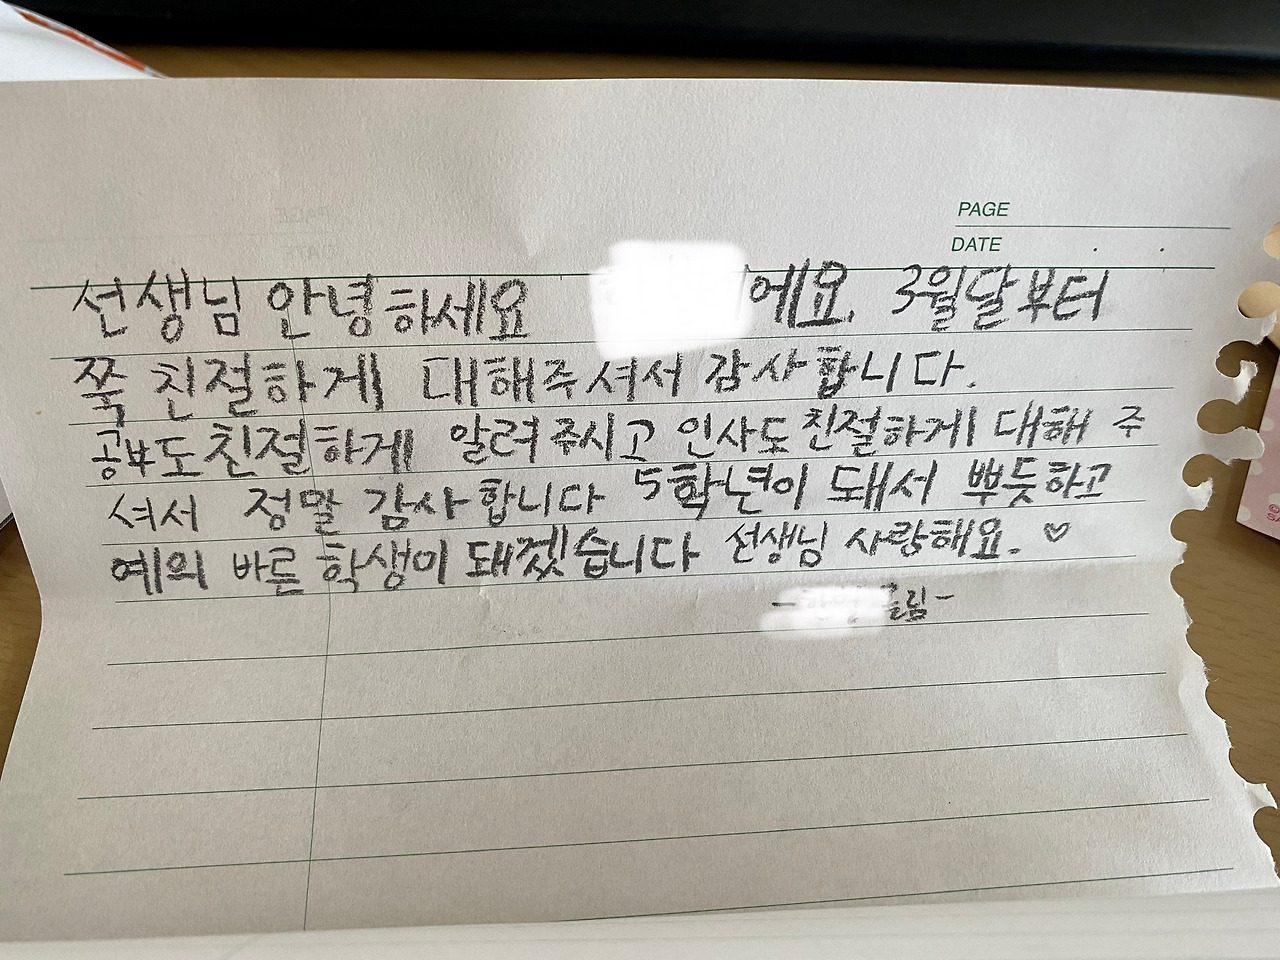 PAGE
DATE . .
선생님 안녕하세요 에요. 3월달부터
쭉 친절하게 대해주셔서 감사합니다.
공부도친절하게 알려주시고 인사도친절하게 대해 주
셔서 정말 감사합니다 5학년이 돼서 뿌듯하고
예의 바른 학생이 돼겠습니다 선생님 사랑해요. ♡
- 올림 -